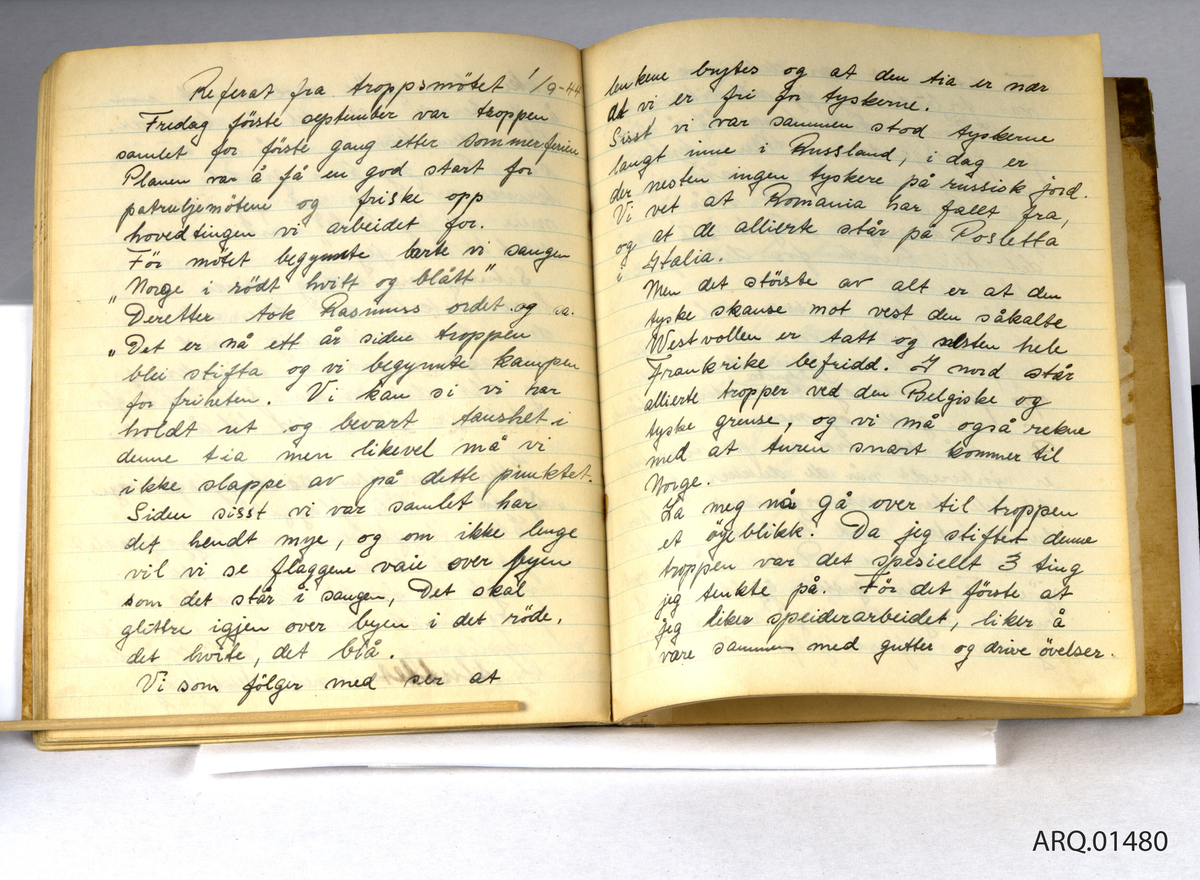 Referat fra troppsmötet 1/9-44
Fredag förste september var troppen
samlet for förste gang etter sommerferien
Planen var å få en god start for
patruljemötene og friske opp
hovedtingen vi arbeidet for.
För mötet begynnte lærte vi sangen
"Norge i rödt hvitt og blått"
Deretter tok Rasmuss ordet og sa.
"Det er nå ett år siden troppen
blei stifta og vi begynnte kampen
for friheten. Vi kan si vi har
holdt ut og bevart taushet i
denne tia men likevel må vi
ikke slappe av på dette punktet.
Siden sisst vi var samlet har
det hendt mye, og om ikke lenge
vil vi se flaggene vaie over byen
som det står i sangen, Det skal
glittre igjen over byen i det röde,
det hvite, det blå.
Vi som fölger med ser at
lenkene brytes og at den tia er nær
At vi er fri for tyskerne.
Sisst vi var sammen stod tyskerne
langt inne i Russland, i dag er
der nesten ingen tyskere på russisk jord.
Vi vet at Romania har fallt fra,
og at de allierte står på Posletta
i Italia.
Men det störste av alt er at den
tyske skanse mot vest den såkalte
Westvollen er tatt og nesten hele
Frankrike befridd. I nord står
allierte tropper ved den Belgiske og
tyske grense, og vi må også rekne
med at turen snart kommer til
Norge.
La meg nå gå over til troppen
et öyeblikk. Da jeg stiftet denne
troppen var det spesiellt 3 ting
jeg tenkte på. För det förste at
jeg liker speiderarbeidet, liker å
være sammen med gutter og drive övelser.
ARQ.01480